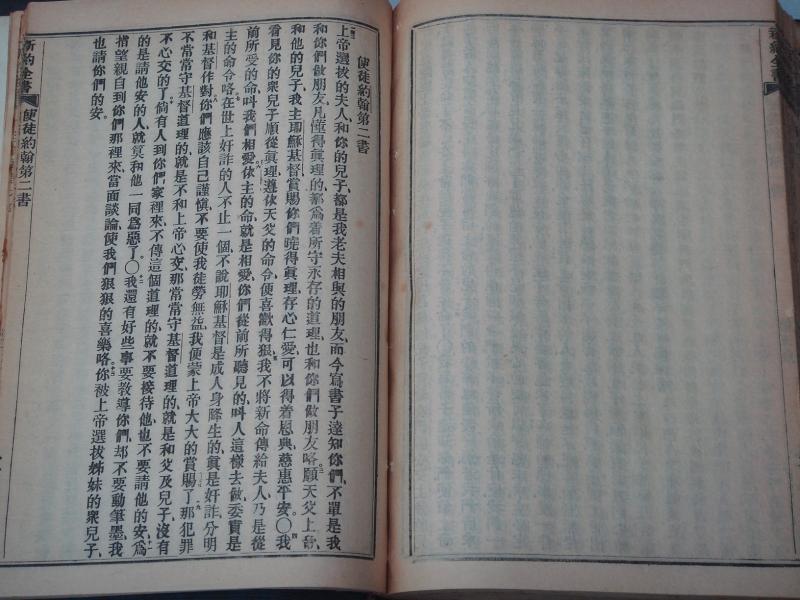 新約全書
使徒約翰第二書
上帝選拔的夫人、和你的兒子、都是我老夫相與的朋友、而今寫書子達知你們、不單是我
和你們做朋友、凡懂得眞理的、都爲着所守永存的道理、也和你們做朋友咯、願天父上帝
和他的兒子、我主耶穌基督、賞賜你們、曉得眞理、存心仁愛、可以得着恩典、慈惠平安、〇我
看見你的衆兒子、順從眞理、遵依天父的命令、便喜歡得狠、我不將新命傳給夫人、乃是從
前所受的命、叫我們相愛、依主的命、就是相愛、你們從前所聽見的、叫人這樣去做、委實是
主的命令咯、在世上奸詐的人不止一個、不說耶穌基督是成人身降生的、眞是奸詐、分明
和基督作對、你們應該自己謹愼、不要使我徒勞無益、我便蒙上帝大大的賞賜了、那犯罪
不常常守基督道理的、就是不和上帝心交、那常常守基督道理的、就是和父及兒子、沒有
不心交的了、倘有人到你們家裡來、不傳這個道理的、就不要接待他、也不要請他的安、爲
的是請他安的人、就算和他一同爲惡了、〇我還有好些事要敎導你們、却不要動筆墨、我
指望親自到你們那裡來、當面談論、使我們狠狠的喜樂咯、你被上帝選拔姊妹的衆兒子、
也請你們的安。
新約全書
使徒約翰第二書